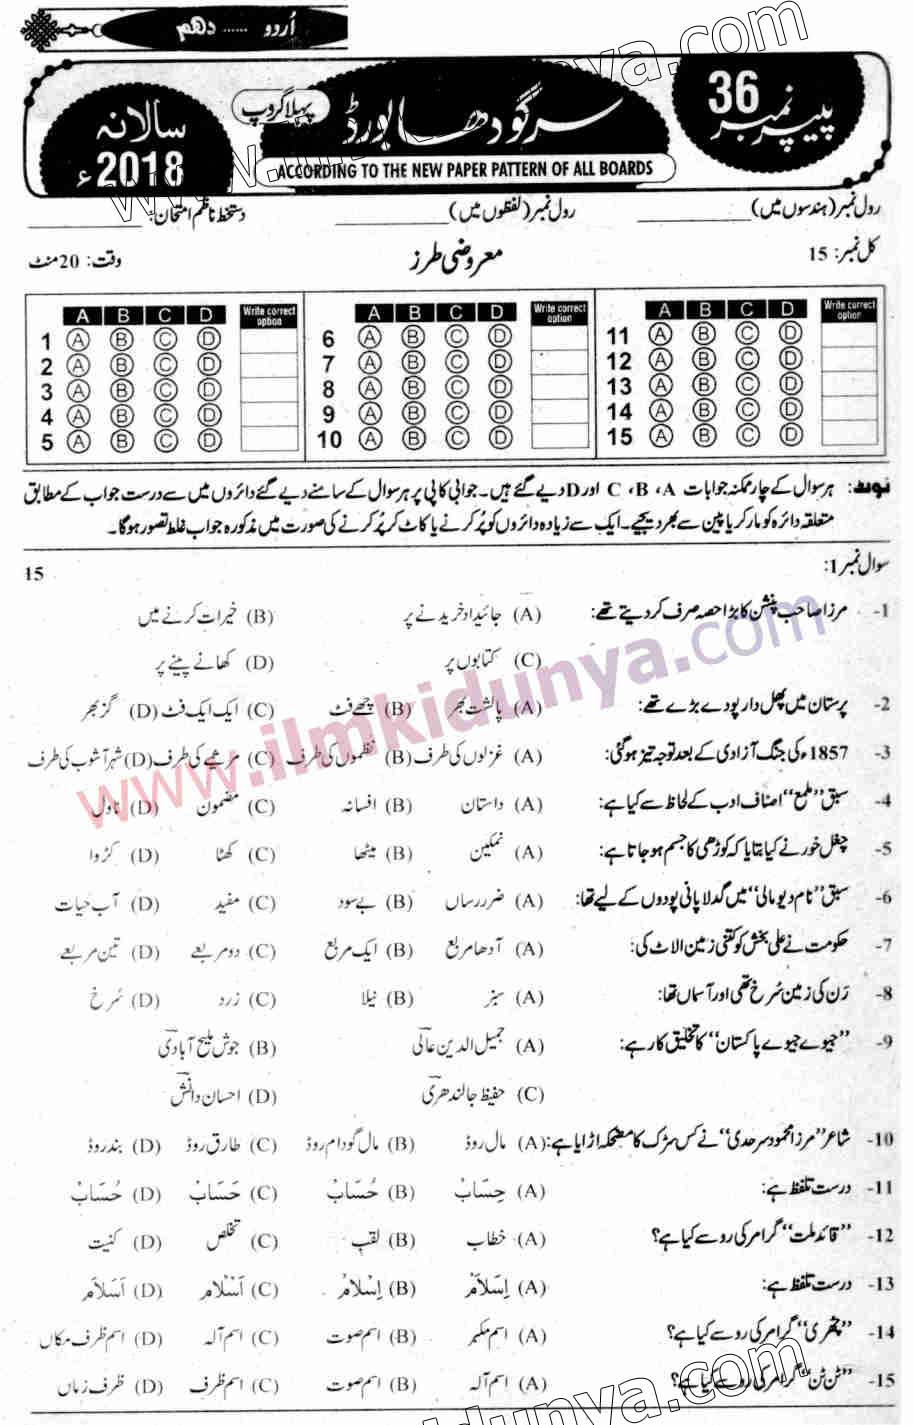 اُردو ...... دهم
پیپر نمبر 36
سرگودھا بورڈ
پہلا گروپ
سالانہ 2018ء
ACCORDING TO THE NEW PAPER PATTERN OF ALL BOARDS
رول نمبر (ہندسوں میں) ____________ رول نمبر (لفظوں میں) ____________ دستخط ناظم امتحان: ____________
کل نمبر: 15 معروضی طرز وقت: 20 منٹ
A B C D Write correct option A B C D Write correct option A B C D Write correct option
1 A B C D 6 A B C D 11 A B C D
2 A B C D 7 A B C D 12 A B C D
3 A B C D 8 A B C D 13 A B C D
4 A B C D 9 A B C D 14 A B C D
5 A B C D 10 A B C D 15 A B C D
نوٹ: ہر سوال کے چار ممکنہ جوابات A ،B ،C اور D دیے گئے ہیں۔ جوابی کاپی پر ہر سوال کے سامنے دیے گئے دائروں میں سے درست جواب کے مطابق
متعلقہ دائرہ کو مارکر یا پین سے بھر دیجیے۔ ایک سے زیادہ دائروں کو پُر کرنے یا کاٹ کر پُر کرنے کی صورت میں مذکورہ جواب غلط تصور ہوگا۔
سوال نمبر 1: 15
1- مرزا صاحب پنشن کا بڑا حصہ صرف کر دیتے تھے: (A) جائیداد خریدنے پر (B) خیرات کرنے میں
(C) کتابوں پر (D) کھانے پینے پر
2- پرستان میں پھل دار پودے بڑے تھے: (A) بالشت بھر (B) چھے فٹ (C) ایک ایک فٹ (D) گز بھر
3- 1857ء کی جنگ آزادی کے بعد توجہ تیز ہو گئی: (A) غزلوں کی طرف (B) نظموں کی طرف (C) مرثیے کی طرف (D) شہر آشوب کی طرف
4- سبق ’’ملمع‘‘ اصناف ادب کے لحاظ سے کیا ہے: (A) داستان (B) افسانہ (C) مضمون (D) ناول
5- چغل خور نے کیا بتایا کہ کوڑھی کا جسم ہو جاتا ہے: (A) نمکین (B) میٹھا (C) کھٹا (D) کڑوا
6- سبق ’’نام دیو مالی‘‘ میں گدلا پانی پودوں کے لیے تھا: (A) ضرر رساں (B) بے سود (C) مفید (D) آب حیات
7- حکومت نے علی بخش کو کتنی زمین الاٹ کی: (A) آدھا مربع (B) ایک مربع (C) دو مربعے (D) تین مربعے
8- رَن کی زمین سُرخ تھی اور آسماں تھا: (A) سبز (B) نیلا (C) زرد (D) سُرخ
9- ’’جیوے جیوے پاکستان‘‘ کا تخلیق کار ہے: (A) جمیل الدین عالی (B) جوش ملیح آبادی
(C) حفیظ جالندھری (D) احسان دانش
10- شاعر ’’مرزا محمود سرحدی‘‘ نے کس سڑک کا مضحکہ اڑایا ہے: (A) مال روڈ (B) مال گودام روڈ (C) طارق روڈ (D) بند روڈ
11- درست تلفظ ہے: (A) حِسَابْ (B) حُسَابْ (C) حَسَابْ (D) حُسَابُ
12- ’’قائد ملت‘‘ گرامر کی رو سے کیا ہے؟ (A) خطاب (B) لقب (C) تخلص (D) کنیت
13- درست تلفظ ہے: (A) اِسَلَامْ (B) اِسْلَامْ (C) اَسْلَامْ (D) اَسَلَامْ
14- ’’چھری‘‘ گرامر کی رو سے کیا ہے؟ (A) اسم مکبر (B) اسم صوت (C) اسم آلہ (D) اسم ظرف مکاں
15- ’’ٹن ٹن‘‘ گرامر کی رو سے کیا ہے؟ (A) اسم آلہ (B) اسم صوت (C) اسم ظرف (D) ظرف زماں
www.ilmkidunya.com